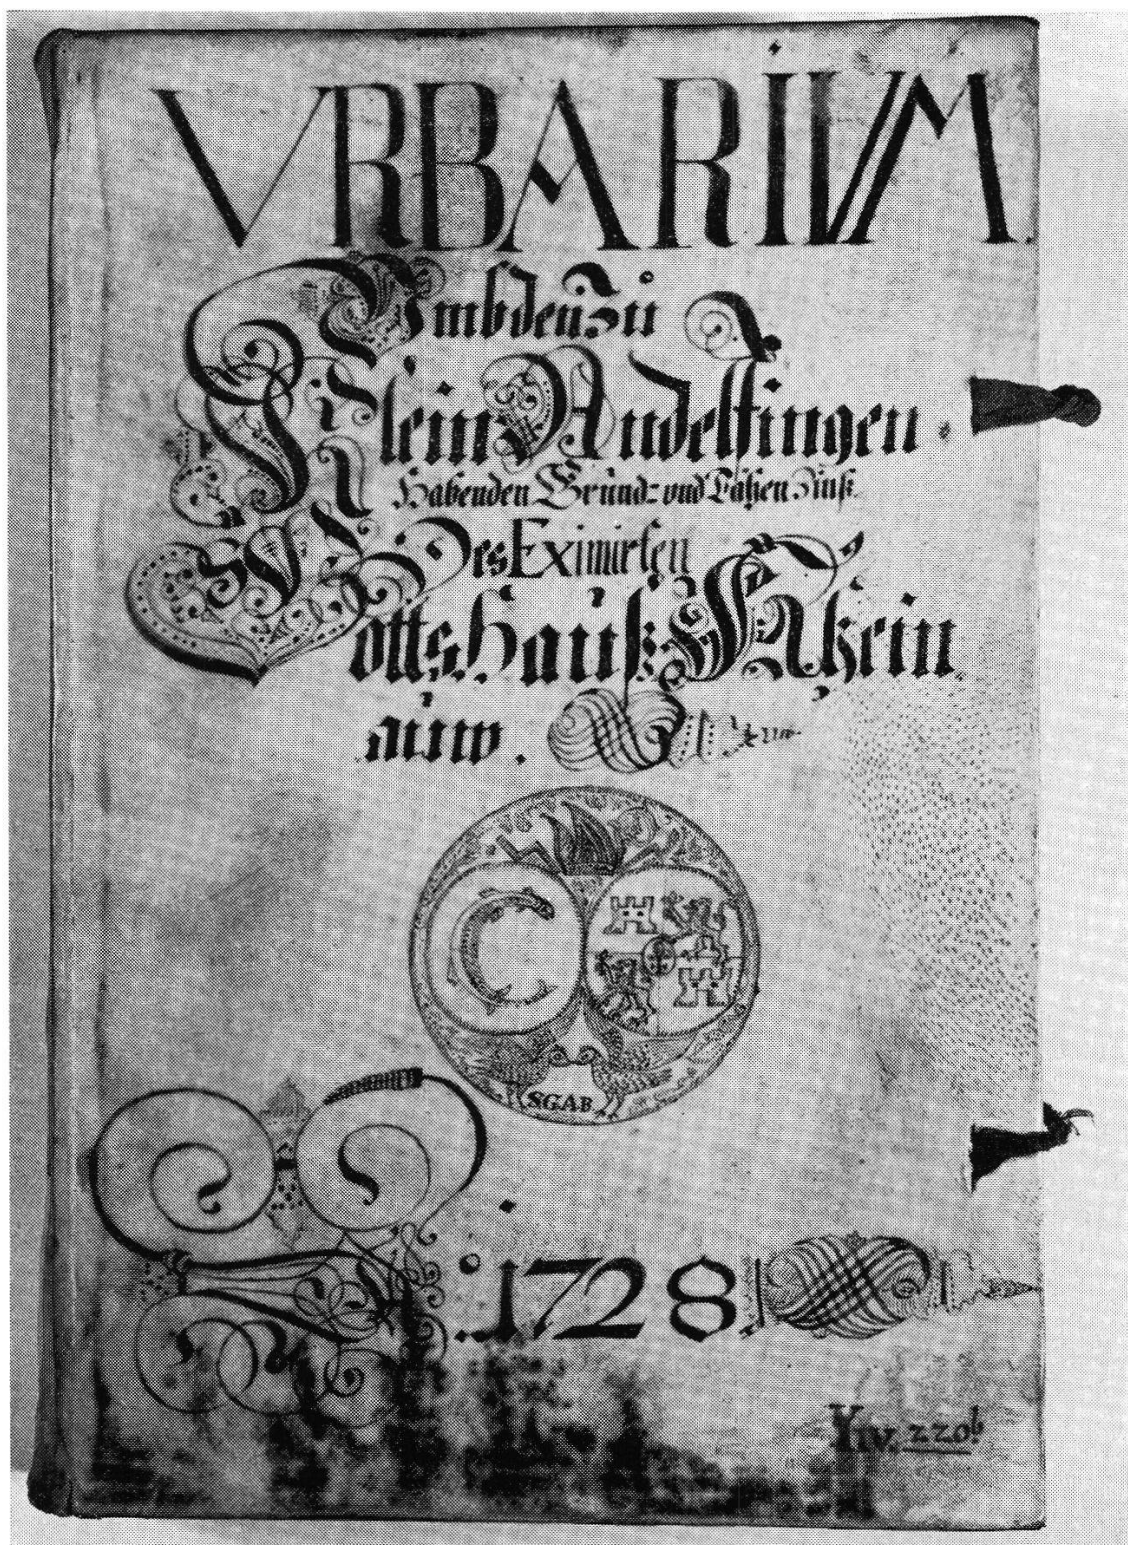 VRBARIUM.
Umb den Zu
Klein Andelfingen.
Habenden Grund= vnd Lähen Zinß.
Des Eximirten
Gottshauß Rhein
auw.
SGAB
1728
Yiv. 220b